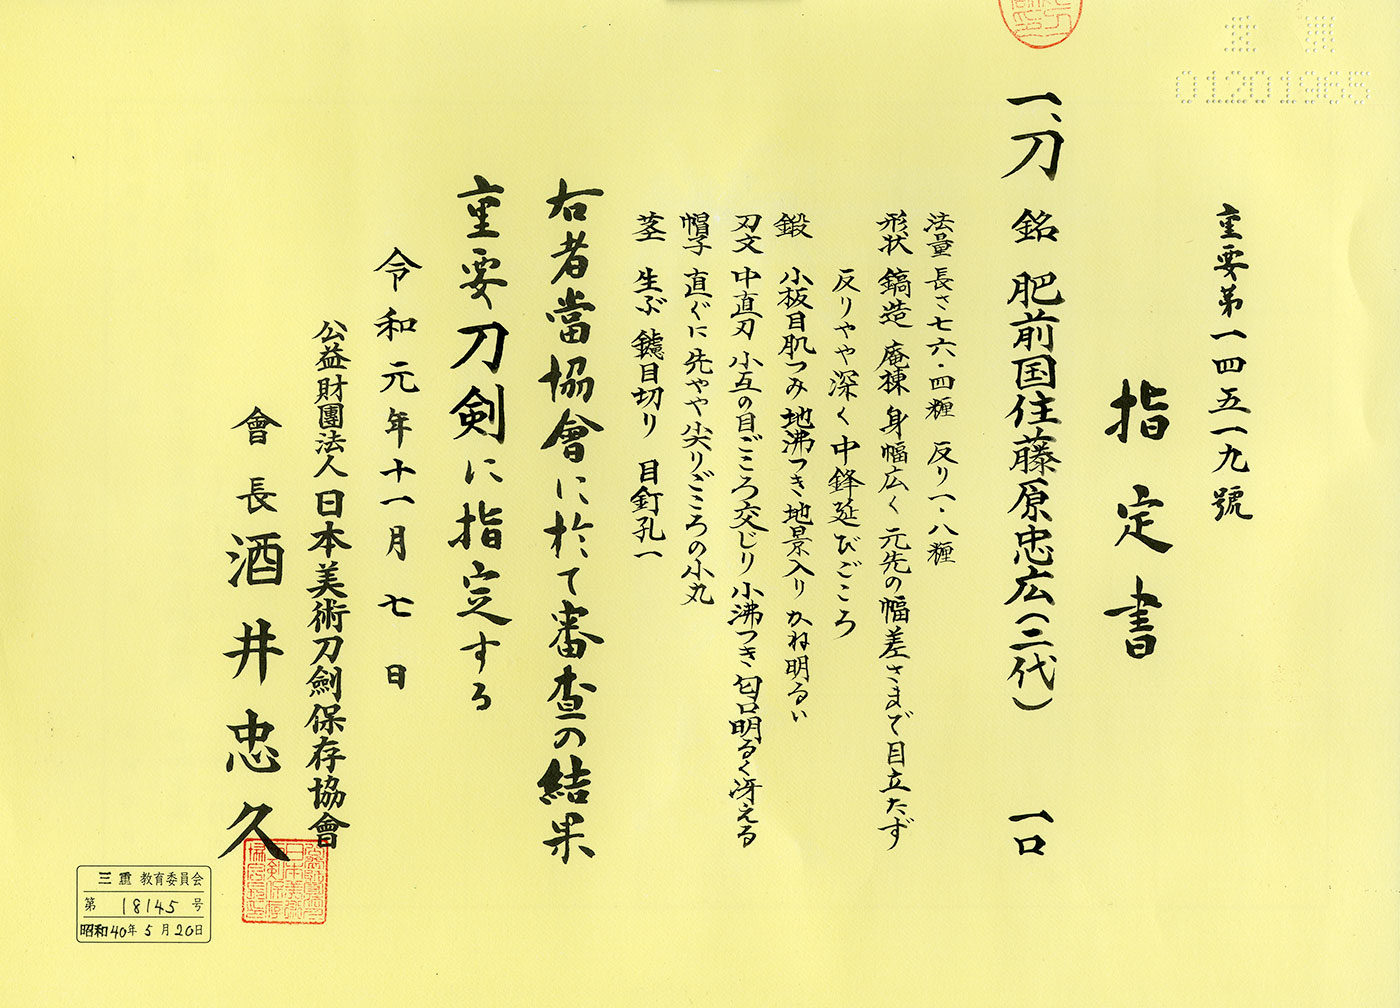 重要第一四五一九號
指定書
一、刀 銘 肥前国住藤原忠広(二代) 一口
法量 長さ七六・四糎 反り一・八糎
形状 鎬造 庵棟 身幅広く 元先の幅差さまで目立たず
反りやや深く 中鋒延びごころ
鍛 小板目肌つみ 地沸つき 地景入り かね明るい
刃文 中直刃 小互の目ごころ交じり 小沸つき 匂口明るく冴える
帽子 直ぐに 先やや尖りごころの小丸
茎 生ぶ 鑢目切り 目釘孔一
右者當協會に於て審査の結果
重要刀剣に指定する
令和元年十一月七日
公益財團法人日本美術刀劍保存協會
會長 酒井忠久
三重 教育委員会
第 18145 号
昭和40年5月20日
01201965